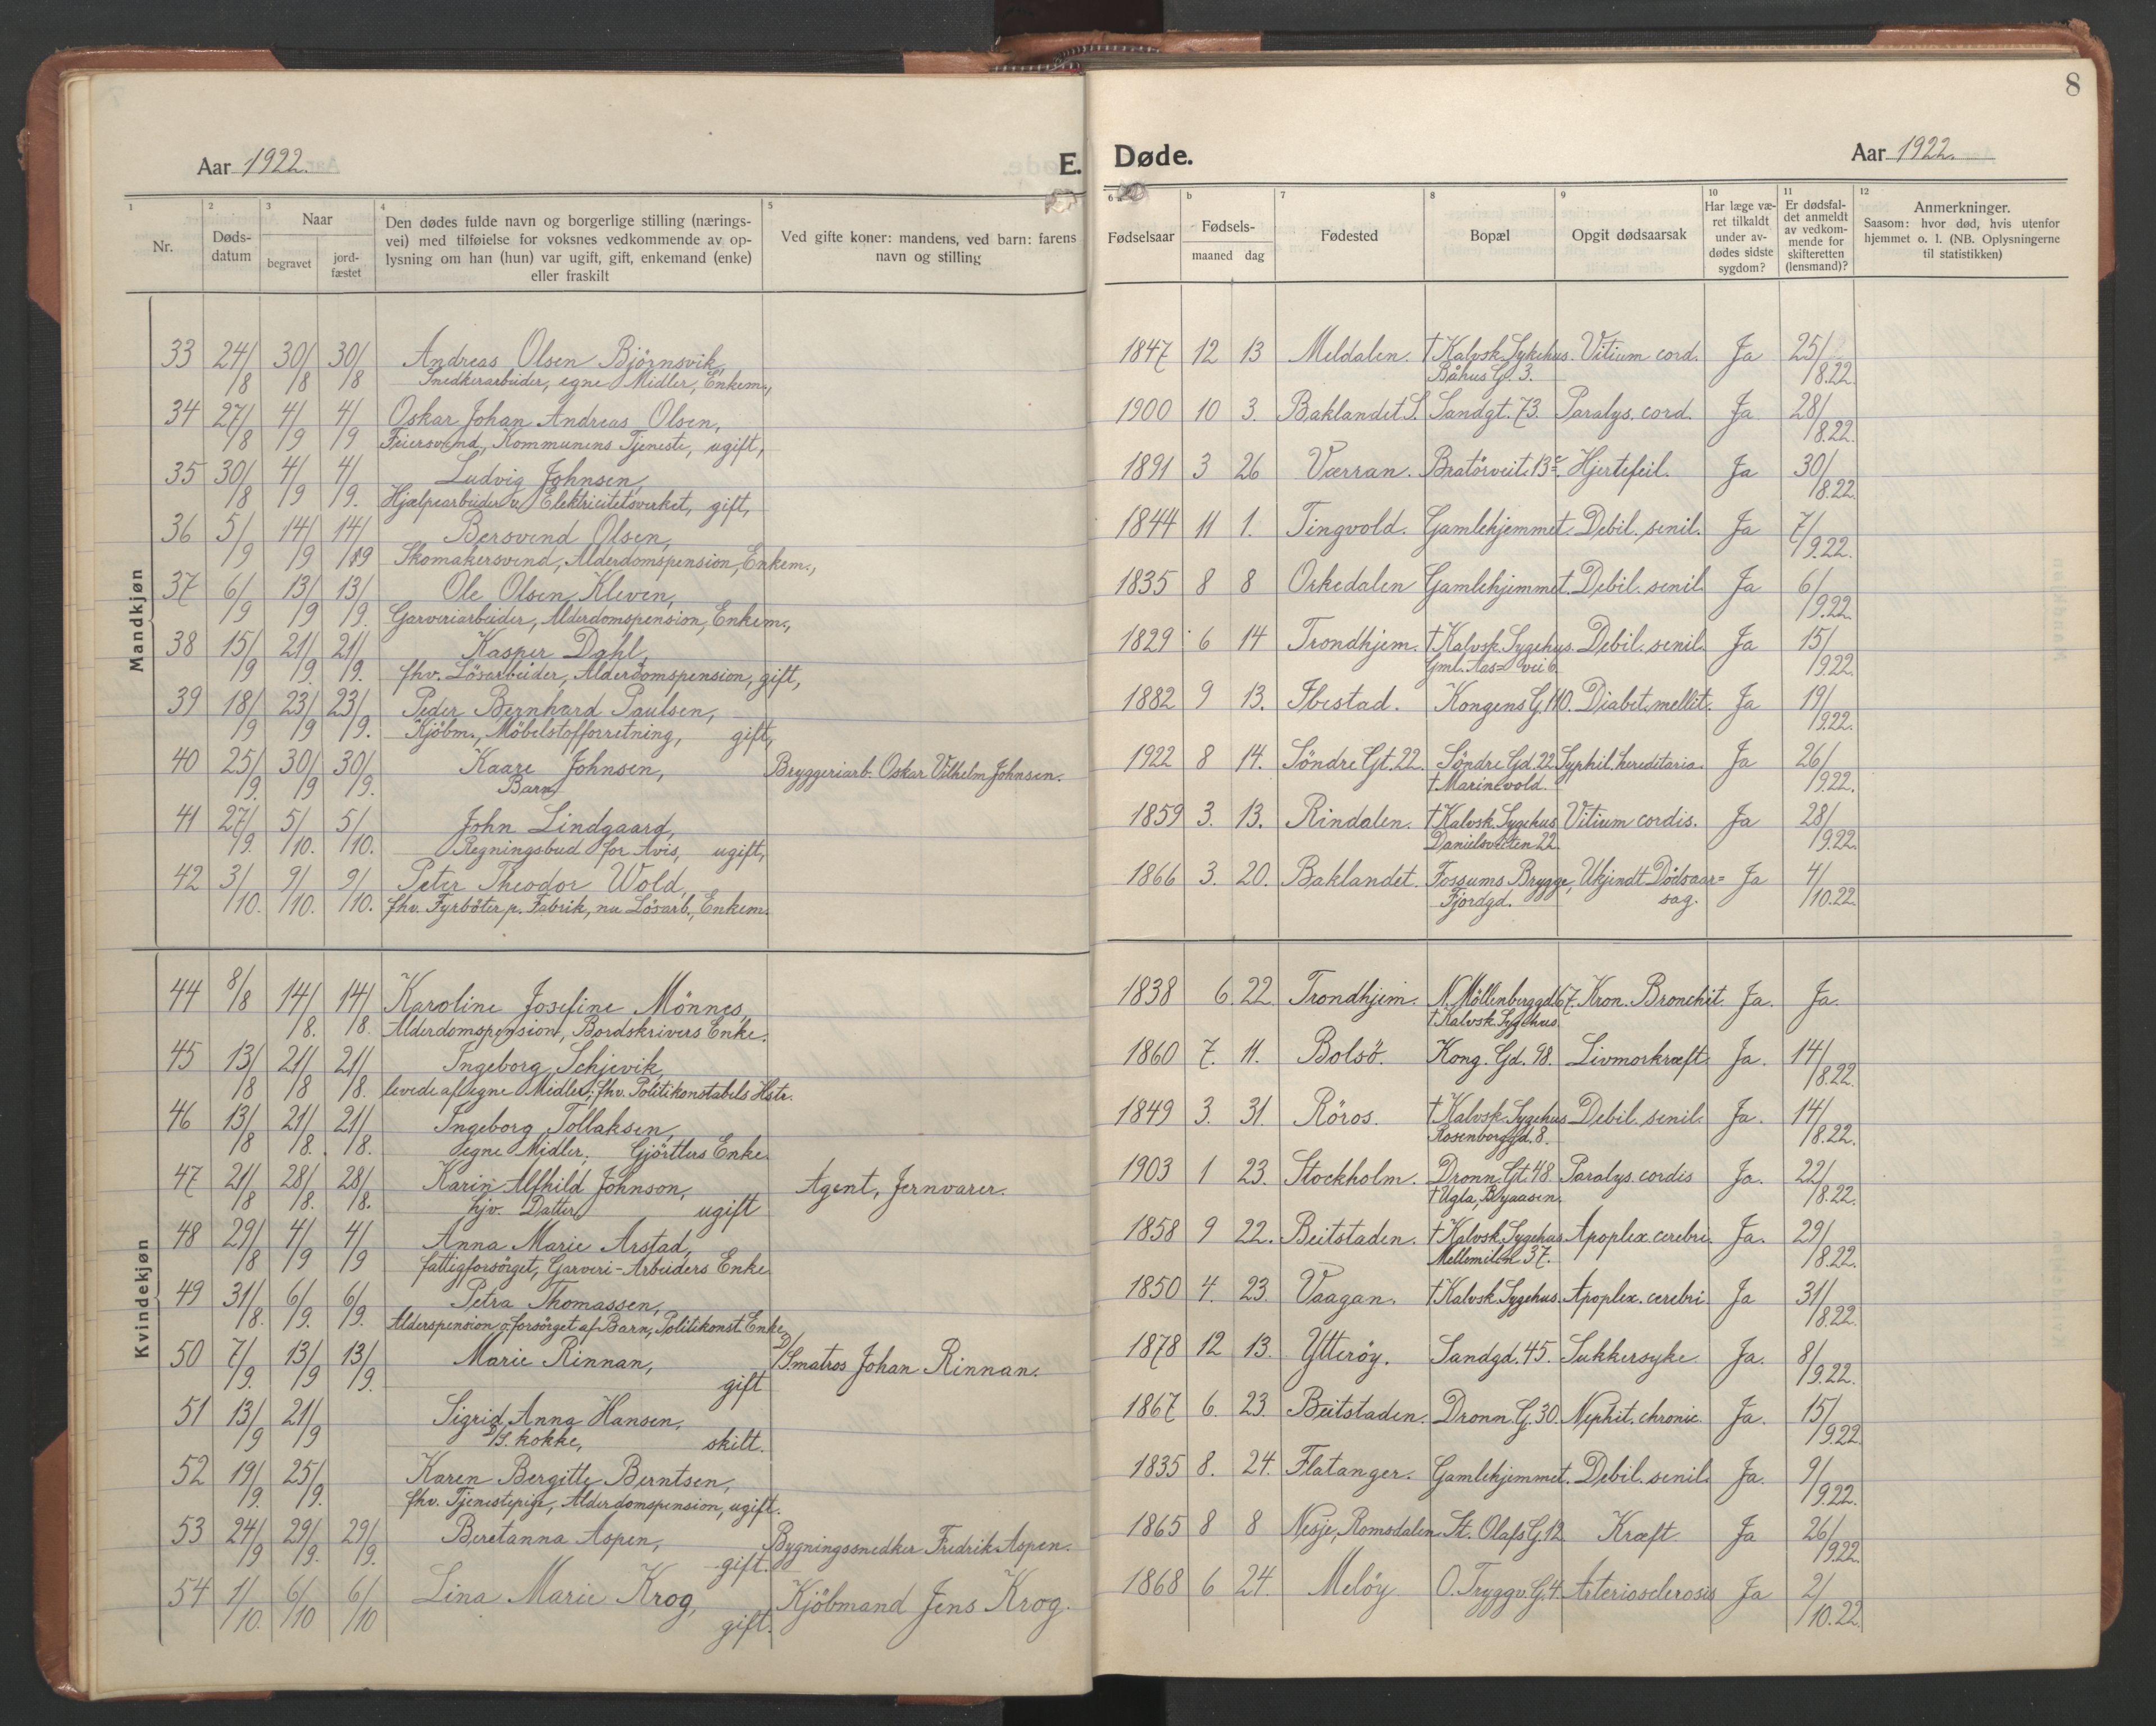 8
Aar 1922.
E. Døde.
Aar 1922.
1 Nr.
2 Døds-datum
3 Naar begravet jord-fæstet
4 Den dødes fulde navn og borgerlige stilling (nærings-
vei) med tilføielse for voksnes vedkommende av op-
lysning om han (hun) var ugift, gift, enkemand (enke)
eller fraskilt
5 Ved gifte koner: mandens, ved barn: farens
navn og stilling
6 a Fødselsaar
b Fødsels- maaned dag
7 Fødested
8 Bopæl
9 Opgit dødsaarsak
10 Har læge væ-
ret tilkaldt
under av-
dødes sidste
sygdom?
11 Er dødsfal-
det anmeldt
av vedkom-
mende for
skifteretten
(lensmand)?
12 Anmerkninger.
Saasom: hvor død, hvis utenfor
hjemmet o. l. (NB. Oplysningerne
til statistikken)
Mandkjøn
33 24/8 30/8 30/8 Andreas Olsen Bjørnsvik, 1847 12 13 Meldalen. † Kalvsk. Sykehus. Vitium cord. Ja 25/8.22.
Snedkerarbeider, egne Midler, Enkem., Båhus G. 3.
34 27/8 4/9 4/9 Oskar Johan Andreas Olsen, 1900 10 3. Baklandet S. Sandgt. 73. Paralys. cord. Ja 28/8.22.
Feiersvend, Kommunens Tjeneste, ugift,
35 30/8 4/9 4/9. Ludvig Johnsen, 1891 3 26 Værran. Bratörveit. 13c. Hjertefeil. Ja 30/8.22.
Hjælpearbeider v. Elektricitetsverket, gift,
36 5/9 14/9 14/9 Bersvend Olsen, 1844 11 1. Tingvold. Gamlehjemmet. Debil. senil. Ja 7/9.22.
Skomakersvend, Alderdomspension, Enkem.,
37 6/9 13/9 13/9. Ole Olsen Kleven, 1835 8 8 Orkedalen Gamlehjemmet. Debil. senil. Ja 6/9.22.
Garveriarbeider, Alderdomspension, Enkem.,
38 15/9 21/9. 21/9. Kasper Dahl, 1829 6 14 Trondhjem. † Kalvsk. Sygehus. Debil. senil. Ja 15/9.22.
fhv. Lösarbeider, Alderdomspension, gift, Gml. Aas= vei 6.
39 18/9 23/9 23/9. Peder Bernhard Paulsen, 1882 9 13. Ibestad. Kongens G. 110. Diabet. mellit. Ja 19/9.22.
Kjöbm., Möbelstofforretning, gift,
40 25/9. 30/9 30/9. Kaare Johnsen, Bryggeriarb. Oskar Vilhelm Johnsen. 1922 8 14. Söndre Gt. 22. Söndre Gd. 22 Syphil. hereditaria. Ja 26/9.22.
Barn, † Marinevold.
41 27/9. 5/10. 5/10. John Lindgaard, 1859 3. 13. Rindalen. † Kalvsk. Sygehus Vitium cordis. Ja 28/9.22.
Regningsbud for Avis, ugift, Danielsveiten 22.
42 3/10. 9/10. 9/10. Peter Theodor Wold, 1866 3. 20. Baklandet. Fossums Brygge, Ukjendt Dödsaar= Ja 4/10.22.
fhv. Fyrböter p. Fabrik, nu Lösarb., Enkem. Fjordgd. sag.
Kvindekjøn
44 8/8 14/8. 14/8. Karoline Josefine Mönnes, 1838 6 22 Trondhjem. N. Möllenberggd. 67. Kron. Bronchit. Ja. Ja.
Alderdomspension, Bordskrivers Enke. † Kalvsk. Sygehus
45 13/8 21/8 21/8. Ingeborg Schjevik, 1860 7. 11. Bolsö. Kong. Gd. 98. Livmorkræft. Ja. 14/8.22.
levede af egne Midler; fhv. Politikonstabels Hstr.
46 13/8 21/8. 21/8. Ingeborg Tollaksen, 1849 3. 31. Röros. † Kalvsk. Sygehus Debil. senil. Ja. 14/8.22.
egne Midler, Gjörtlers Enke. Rosenborggd. 8.
47 21/8 28/8. 28/8. Karin Alfhild Johnson, Agent, Jernvarer. 1903 1 23. Stockholm. Dronn. Gt. 48 Paralys. cordis Ja. 22/8.22.
hjv. Datter, ugift † Ugla, Byaasen.
48 29/8 4/9 4/9 Anna Marie Arstad, 1858 9 22. Beitstaden. † Kalvsk. Sygehus Apoplex. cerebri. Ja. 29/8.22.
fattigforsörget, Garveri-Arbeiders Enke Mellemilen 37.
49 31/8. 6/9. 6/9. Petra Thomassen, 1850 4. 23. Vaagan. † Kalvsk. Sygehus. Apoplex. cerebri. Ja 31/8.22.
Alderspension o. forsörget af Barn, Politikonst. Enke
50 7/9. 13/9 13/9. Marie Rinnan, D/Smatros Johan Rinnan. 1878 12 13. Ytteröy. Sandgd. 45. Sukkersyke. Ja. 8/9.22.
gift
51 13/9 21/9 Sigrid Anna Hansen, 1867 6. 23. Beitstaden. Dronn. G. 30. Nephit. chronic. Ja. 15/9.22
D/S. kokke, skilt.
52 19/9. 25/9. Karen Bergitte Berntsen, 1835 8. 24. Flatanger. Gamlehjemmet. Debil. senil. Ja. 9/9.22.
fhv. Tjenestepige, Alderdomspension, ugift.
53 24/9 29/9. 29/9. Beretanna Aspen, Bygningssnedker Fredrik Aspen. 1865 8 8 Nesje, Romsdalen St. Olafs G. 12 Kræft. Ja 26/9.22.
gift.
54 1/10. 6/10 6/10 Lina Marie Krog, Kjöbmand Jens Krog. 1868 6 24. Melöy O. Tryggv. G. 4. Arteriosclerosis Ja 2/10.22
gift.